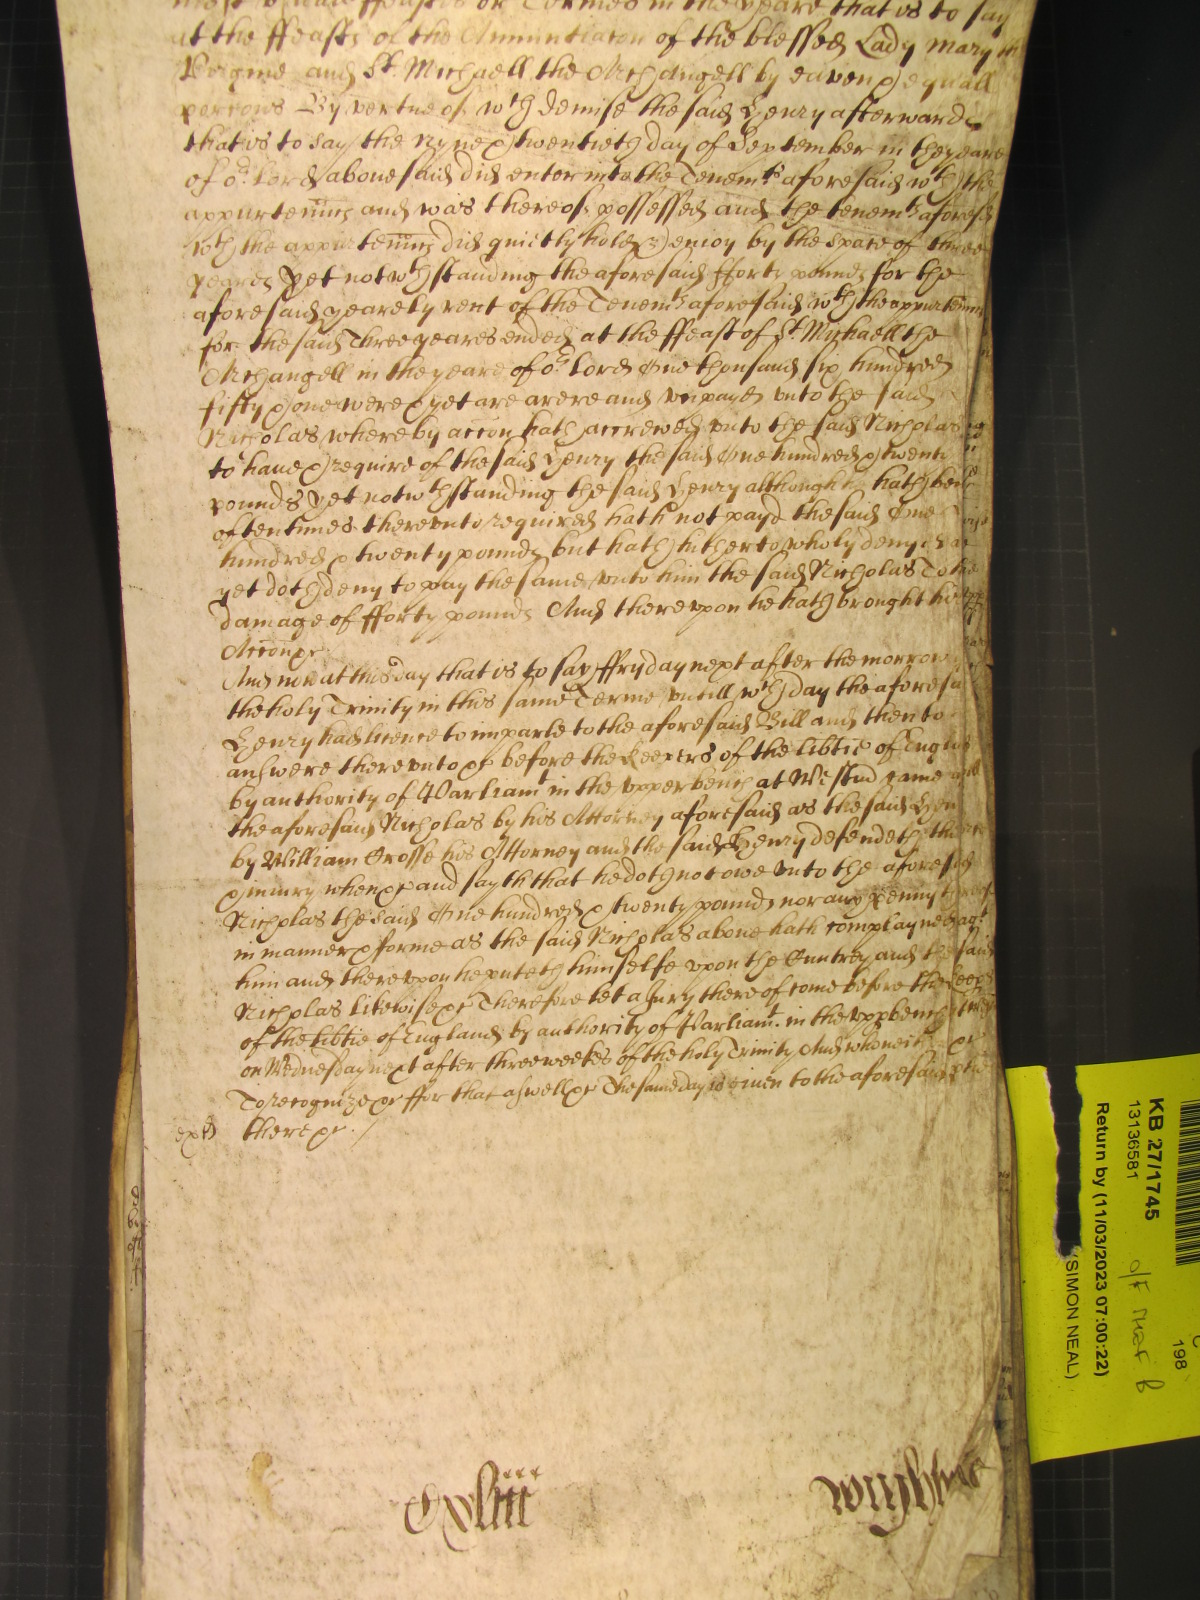 most usuall ffeasts or Termes in the yeare that is to say
at the ffeasts of the Annuntiacon of the blessed Lady Mary the
Virgine and St. Michaell the Archangell by eaven & equall
percons By vertue of wch demise the said Henry afterwards
that is to say the nyne & twentieth day of September in the yeare
of or. Lord abovesaid did enter into the Tenemts aforesaid wth the
appurtennces and was thereof possessed and the tenemts aforesd
wth the appurtennces did quietly hold & enioy by the space of three
yeares Yet notwthstanding the aforesaid fforty pounds for the
aforesaid yearely rent of the Tenemts aforesaid wth the appurtennces
for the said Three yeares ended at the ffeast of St. Mychaell the
Archangell in the yeare of or. Lord One thousand six hundred
fifty & one were & yet are arere and unpayd unto the said
Nicholas whereby accon hath accrewed unto the said Nicholas
to haue & require of the said Henry the said One hundred & twenty
pounds Yet notwthstanding the said Henry although he hath been
oftentimes thereunto required hath not payd the said One
hundred & twenty pounds but hath hitherto wholy denyed and
yet doth deny to pay the same unto him the said Nicholas To the
damage of fforty pounds And thereupon he hath brought his
Accon &c
And now at this day that is to say ffryday next after the morrow
the holy Trinity in this same Terme untill wch day the aforesa
Henry had licence to imparle to the aforesaid Bill and then to
answere thereunto &c before the Keepers of the libtie of England
by authority of Parliamt in the upper bench at Westm came
the aforesaid Nicholas by his Attorney aforesaid as the said Henry
by William Crosse his Attorney and the said Henry defendeth the
& iniury when &c and sayth that he doth not owe unto the aforesaid
Nicholas the said One hundred & twenty pounds nor any penny thereof
in manner & forme as the said Nicholas above hath complayned agt
him and thereupon he puteth himselfe upon the Cuntrey and the said
Nicholas likewise &c Therefore let a Jury thereof come before the Keeps
of the libtie of England by authority of Parliamt. in the uppbench
on Wednesday next after three weekes of the holy Trinity And who neith &c
To recognize &c ffor that aswell &c The same day is given to the aforesaid ptie
there &c.
Cxliii
KB 27/1745
13136581
Return by (11/03/2023 07:00:22)
(SIMON NEAL)
198